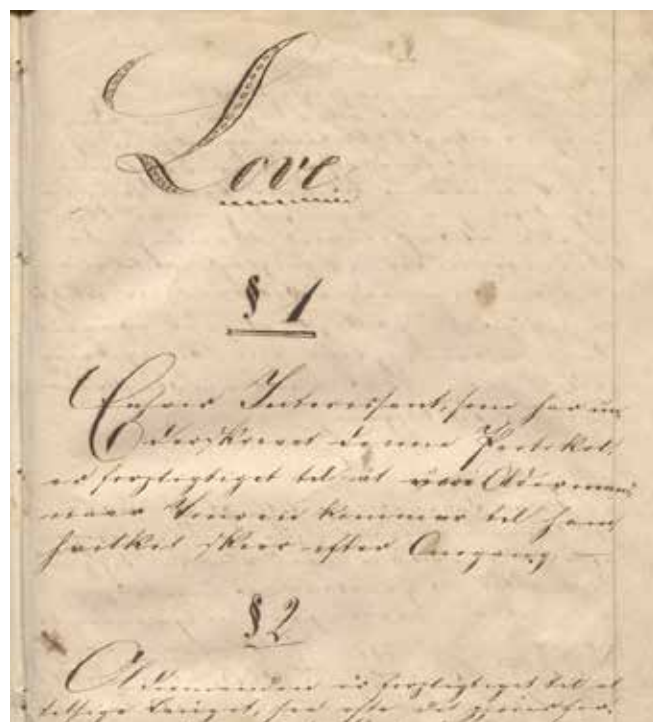 Love
§ 1
Enhver Interessent, som har un
derskrevet denne Protokol,
er forpligtiget til at være Oldermand,
naar Touren kommer til ham,
hvilket skeer efter Omgang —
§ 2
Oldermanden er forpligtiget til at